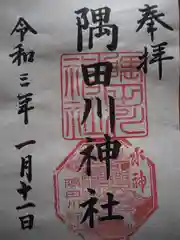 奉拝
隅田川神社
令和三年 一月十一日
水神
隅田川